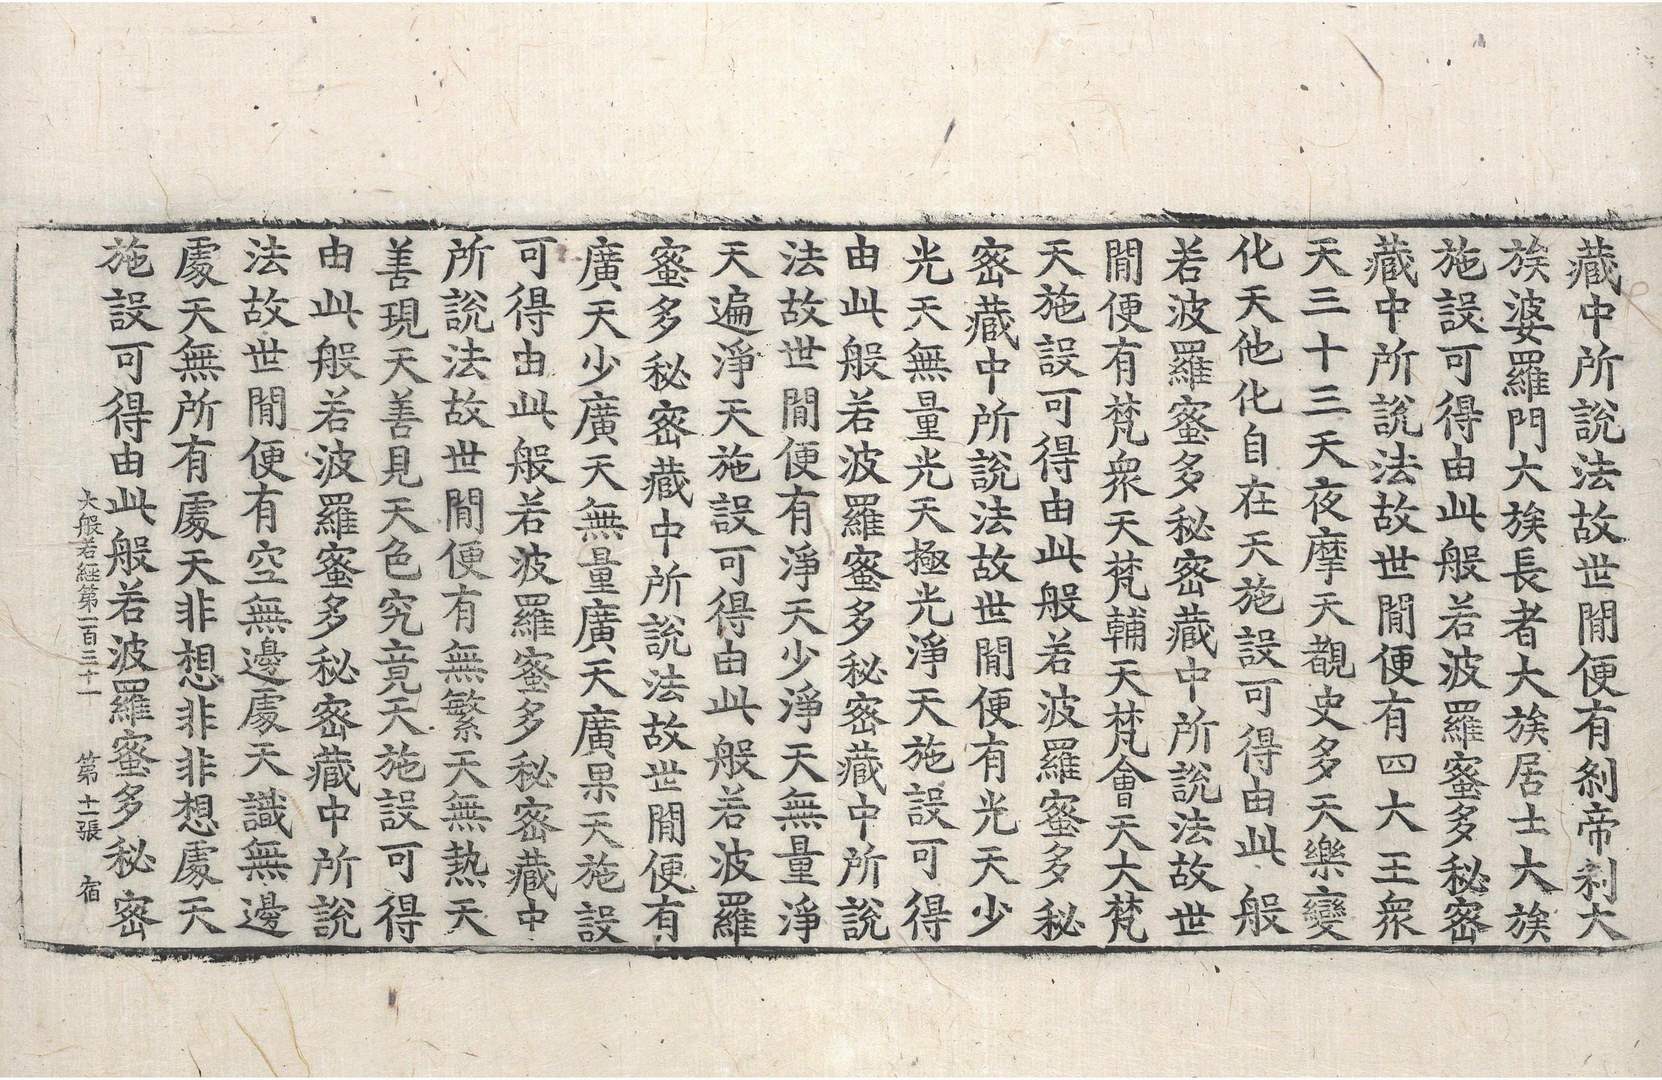 藏中所說法故世閒便有剎帝利大
族婆羅門大族長者大族居士大族
施設可得由此般若波羅蜜多秘密
藏中所說法故世閒便有四大王衆
天三十三天夜摩天覩史多天樂變
化天他化自在天施設可得由此般
若波羅蜜多秘密藏中所說法故世
閒便有梵衆天梵輔天梵會天大梵
天施設可得由此般若波羅蜜多秘
密藏中所說法故世閒便有光天少
光天無量光天極光淨天施設可得
由此般若波羅蜜多秘密藏中所說
法故世閒便有淨天少淨天無量淨
天遍淨天施設可得由此般若波羅
蜜多秘密藏中所說法故世閒便有
廣天少廣天無量廣天廣果天施設
可得由此般若波羅蜜多秘密藏中
所說法故世閒便有無繁天無熱天
善現天善見天色究竟天施設可得
由此般若波羅蜜多秘密藏中所說
法故世閒便有空無邊處天識無邊
處天無所有處天非想非非想處天
施設可得由此般若波羅蜜多秘密
大般若經第一百三十一 第十一張 宿